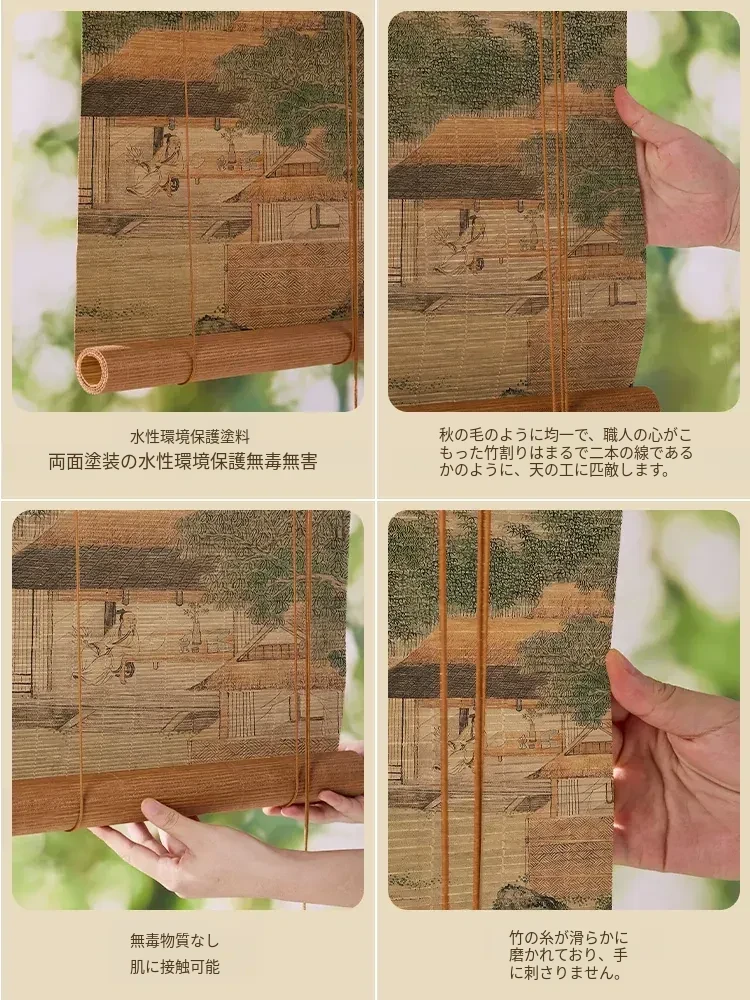 水性環境保護塗料
両面塗装の水性環境保護無毒無害
秋の毛のように均一で、職人の心がこ
もった竹割りはまるで二本の線である
かのように、天の工に匹敵します。
無毒物質なし
肌に接触可能
竹の糸が滑らかに
磨かれており、手
に刺さりません。